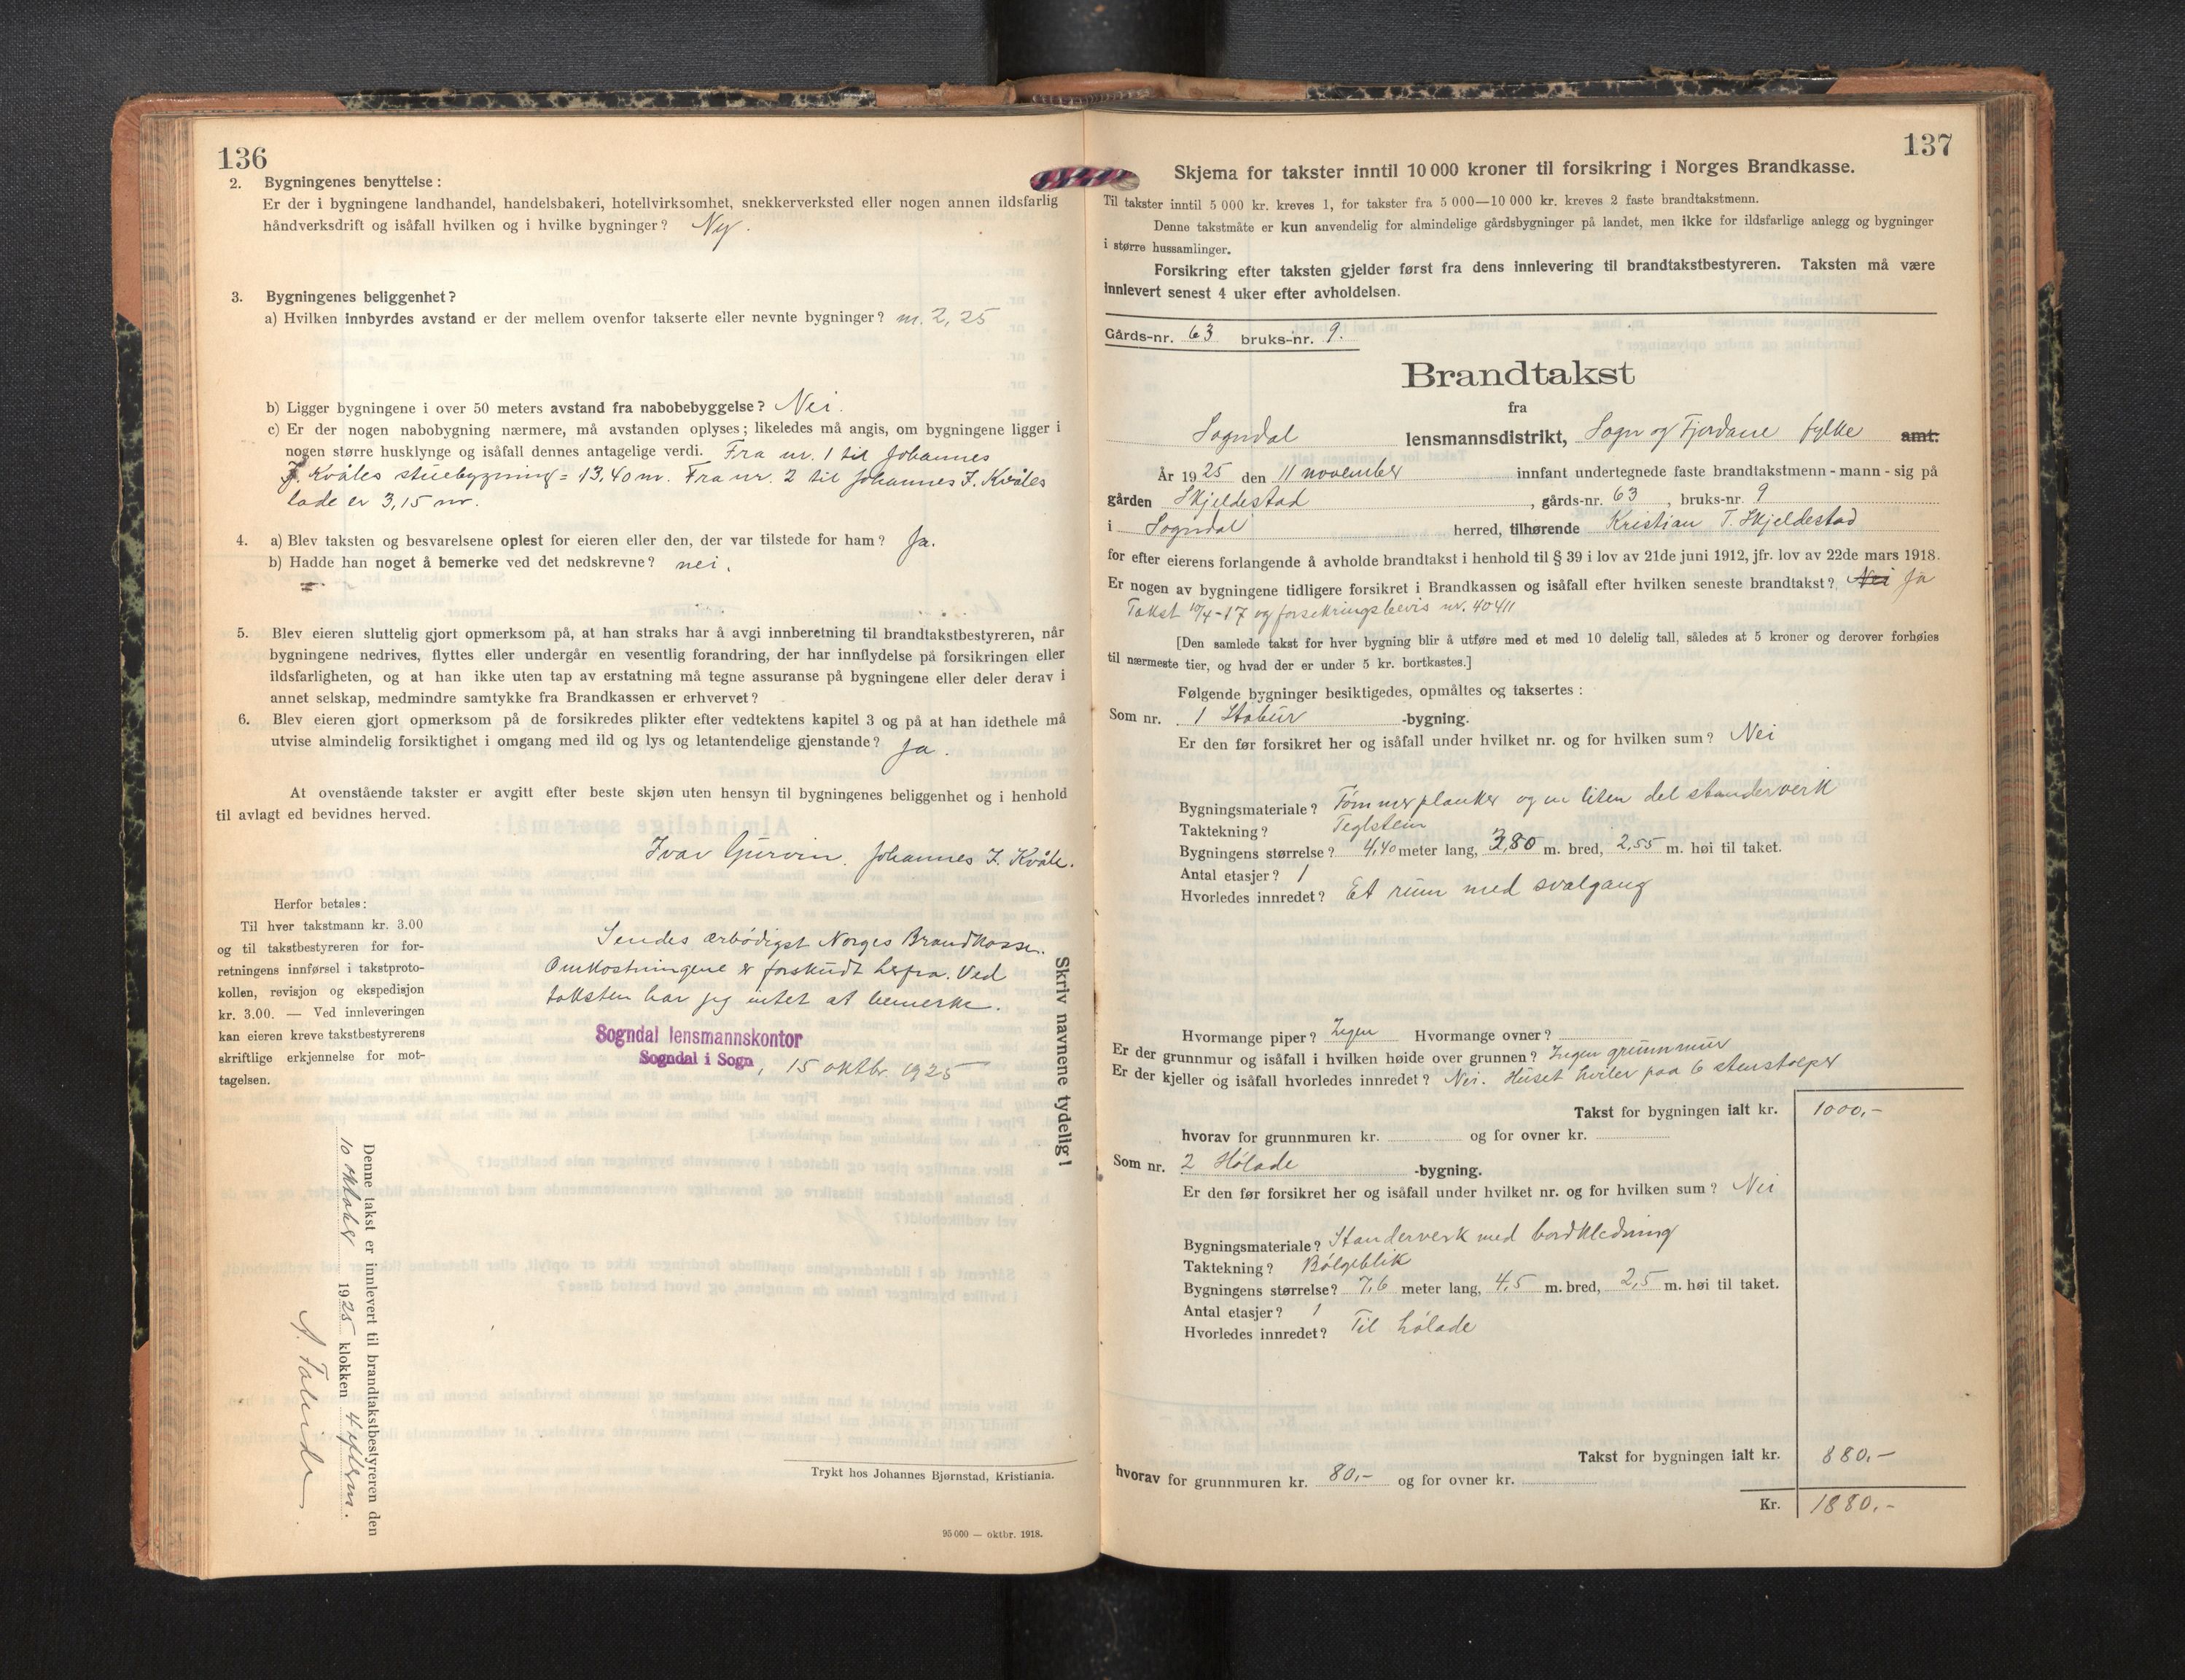 136
2. Bygningenes benyttelse:
Er der i bygningene landhandel, handelsbakeri, hotellvirksomhet, snekkerverksted eller nogen annen ildsfarlig
håndverksdrift og isåfall hvilken og i hvilke bygninger? Nej.
3. Bygningenes beliggenhet?
a) Hvilken innbyrdes avstand er der mellem ovenfor takserte eller nevnte bygninger? m. 2,25
b) Ligger bygningene i over 50 meters avstand fra nabobebyggelse? Nei.
c) Er der nogen nabobygning nærmere, må avstanden oplyses; likeledes må angis, om bygningene ligger i
nogen større husklynge og isåfall dennes antagelige verdi. Fra nr. 1 til Johannes
J. Kvåles stuebygning = 13,40 m. Fra nr. 2 til Johannes J. Kvåles
lade er 3,15 m.
4. a) Blev taksten og besvarelsene oplest for eieren eller den, der var tilstede for ham? Ja.
b) Hadde han noget å bemerke ved det nedskrevne? nei.
5. Blev eieren sluttelig gjort opmerksom på, at han straks har å avgi innberetning til brandtakstbestyreren, når
bygningene nedrives, flyttes eller undergår en vesentlig forandring, der har innflydelse på forsikringen eller
ildsfarligheten, og at han ikke uten tap av erstatning må tegne assuranse på bygningene eller deler derav i
annet selskap, medmindre samtykke fra Brandkassen er erhvervet?
6. Blev eieren gjort opmerksom på de forsikredes plikter efter vedtektens kapitel 3 og på at han idethele må
utvise almindelig forsiktighet i omgang med ild og lys og letantendelige gjenstande? Ja.
At ovenstående takster er avgitt efter beste skjøn uten hensyn til bygningenes beliggenhet og i henhold
til avlagt ed bevidnes herved.
Ivar Gurvin. Johannes J. Kvåle.
Herfor betales:
Til hver takstmann kr. 3.00
og til takstbestyreren for for-
retningens innførsel i takstproto-
kollen, revisjon og ekspedisjon
kr. 3.00. — Ved innleveringen
kan eieren kreve takstbestyrerens
skriftlige erkjennelse for mot-
tagelsen.
Sendes ærbödigst Norges Brandkasse.
Omkostningene er forskudt herfra. Ved
taksten har jeg intet at bemerke.
Sogndal lensmannskontor
Sogndal i Sogn, 15 oktbr. 1925
Skriv navnene tydelig!
Denne takst er innlevert til brandtakstbestyreren den
10 oktober 1925 klokken 4 efterm.
Trykt hos Johannes Bjørnstad, Kristiania.
95 000 — oktbr. 1918.
137
Skjema for takster inntil 10 000 kroner til forsikring i Norges Brandkasse.
Til takster inntil 5 000 kr. kreves 1, for takster fra 5 000—10 000 kr. kreves 2 faste brandtakstmenn.
Denne takstmåte er kun anvendelig for almindelige gårdsbygninger på landet, men ikke for ildsfarlige anlegg og bygninger
i større hussamlinger.
Forsikring efter taksten gjelder først fra dens innlevering til brandtakstbestyreren. Taksten må være
innlevert senest 4 uker efter avholdelsen.
Gårds-nr. 63 bruks-nr. 9.
Brandtakst
fra
Sogndal lensmannsdistrikt, Sogn og Fjordane fylke amt.
År 1925 den 11 november innfant undertegnede faste brandtakstmenn - mann - sig på
gården Skjeldestad, gårds-nr. 63, bruks-nr. 9
i Sogndal herred, tilhørende Kristian T. Skjeldestad
for efter eierens forlangende å avholde brandtakst i henhold til § 39 i lov av 21de juni 1912, jfr. lov av 22de mars 1918.
Er nogen av bygningene tidligere forsikret i Brandkassen og isåfall efter hvilken seneste brandtakst? Nei Ja
Takst 10/4-17 og forsekringsbevis nr. 40411
[Den samlede takst for hver bygning blir å utføre med et med 10 delelig tall, således at 5 kroner og derover forhøies
til nærmeste tier, og hvad der er under 5 kr. bortkastes.]
Følgende bygninger besiktigedes, opmåltes og taksertes:
Som nr. 1 Stabur -bygning.
Er den før forsikret her og isåfall under hvilket nr. og for hvilken sum? Nei
Bygningsmateriale? Tömmerplanker og en liten del standerverk
Taktekning? Teglstein
Bygningens størrelse? 4,40 meter lang, 3,80 m. bred, 2,55 m. høi til taket.
Antal etasjer? 1
Hvorledes innredet? Et rum med svalgang
Hvormange piper? Ingen Hvormange ovner?
Er der grunnmur og isåfall i hvilken høide over grunnen? Ingen grunnmur
Er der kjeller og isåfall hvorledes innredet? Nei. Huset hviler paa 6 stenstolper
Takst for bygningen ialt kr. 1000,-
hvorav for grunnmuren kr. og for ovner kr.
Som nr. 2 Hölade -bygning.
Er den før forsikret her og isåfall under hvilket nr. og for hvilken sum? Nei
Bygningsmateriale? Standerverk med bordkledning
Taktekning? Bölgeblik
Bygningens størrelse? 7,6 meter lang, 4,5 m. bred, 2,5 m. høi til taket.
Antal etasjer? 1
Hvorledes innredet? Til hölade
Takst for bygningen ialt kr. 880,-
hvorav for grunnmuren kr. 80,- og for ovner kr.
Kr. 1880,-